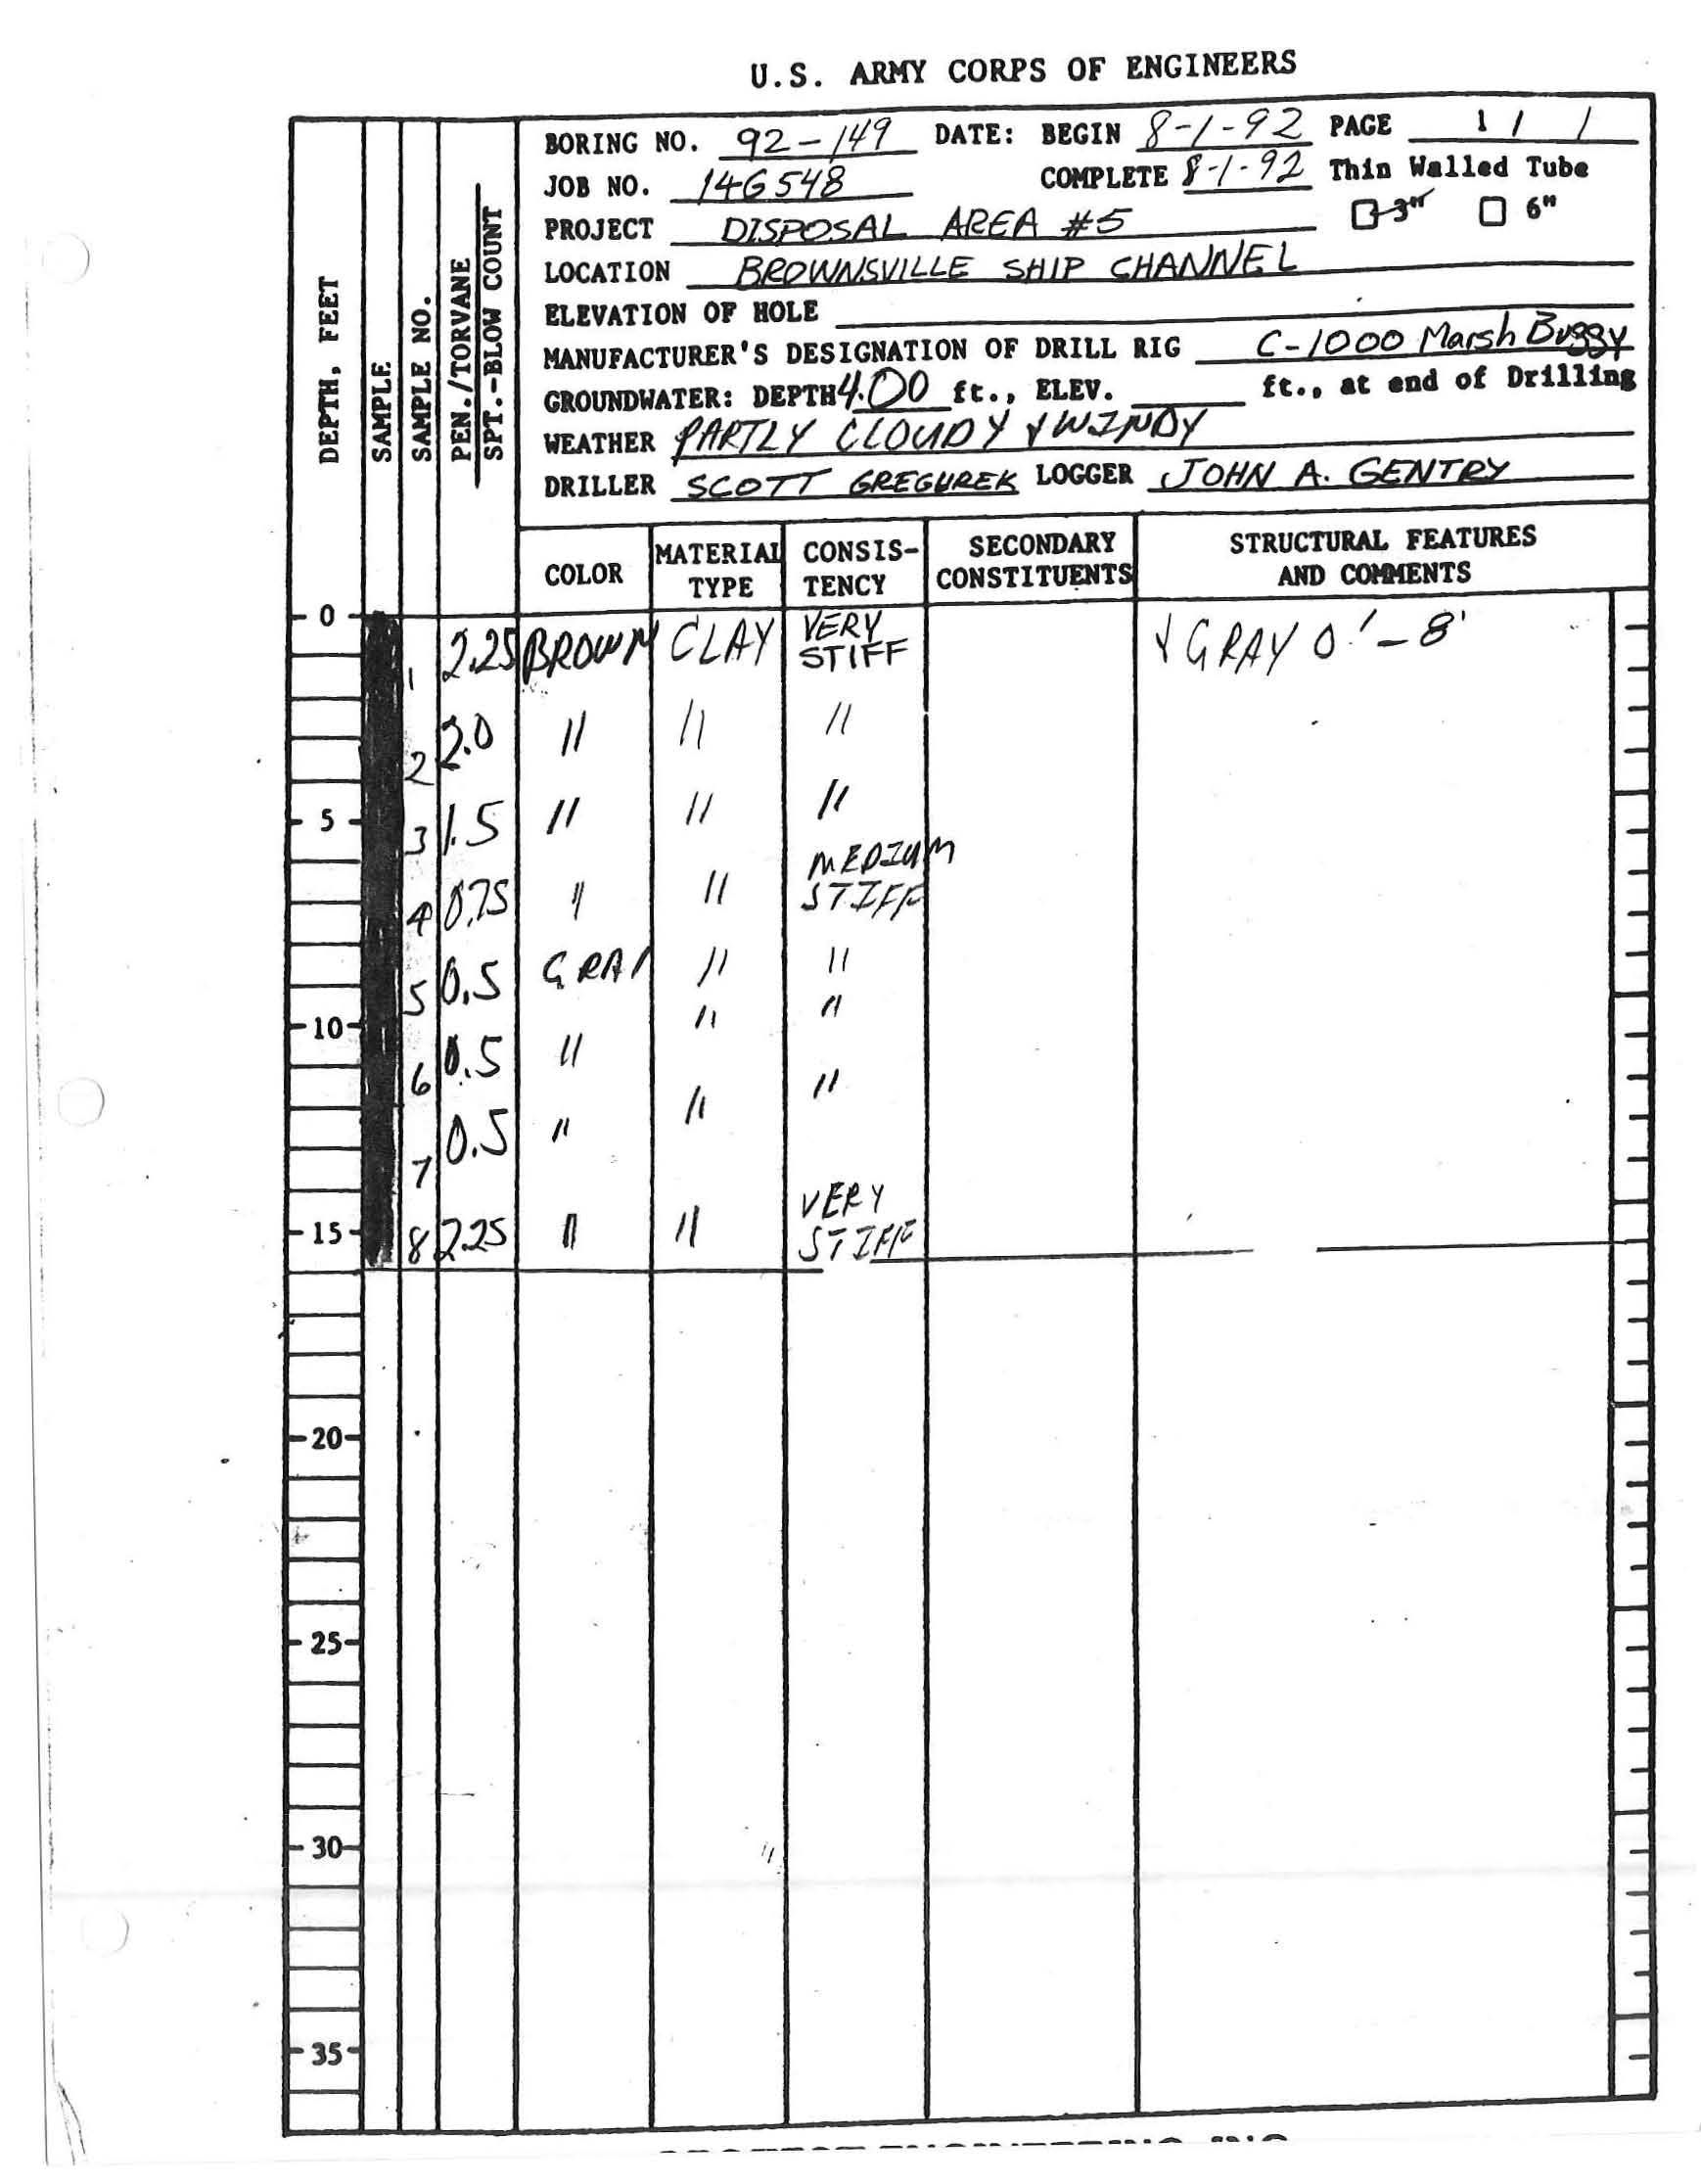 U.S. ARMY CORPS OF ENGINEERS
BORING NO. 92-149 DATE: BEGIN 8-1-92 PAGE 1 / 1
JOB NO. 14G548 COMPLETE 8-1-92 Thin Walled Tube
PROJECT DISPOSAL AREA #5 3" 6"
LOCATION BROWNSVILLE SHIP CHANNEL
ELEVATION OF HOLE
MANUFACTURER'S DESIGNATION OF DRILL RIG C-1000 Marsh Buggy
GROUNDWATER: DEPTH 4.00 ft., ELEV. ft., at end of Drilling
WEATHER PARTLY CLOUDY & WINDY
DRILLER SCOTT GREGUREK LOGGER JOHN A. GENTRY
DEPTH, FEET
SAMPLE
SAMPLE NO.
PEN./TORVANE
SPT.-BLOW COUNT
COLOR
MATERIAL
TYPE
CONSIS-
TENCY
SECONDARY
CONSTITUENTS
STRUCTURAL FEATURES
AND COMMENTS
0
1 2.25 BROWN CLAY VERY
STIFF
& GRAY 0'-8'
2 2.0 " " "
5
3 1.5 " " "
4 0.75 " " MEDIUM
STIFF
5 0.5 GRAY " "
10
6 0.5 " " "
7 0.5 " " "
15
8 2.25 " " VERY
STIFF
20
25
30
35